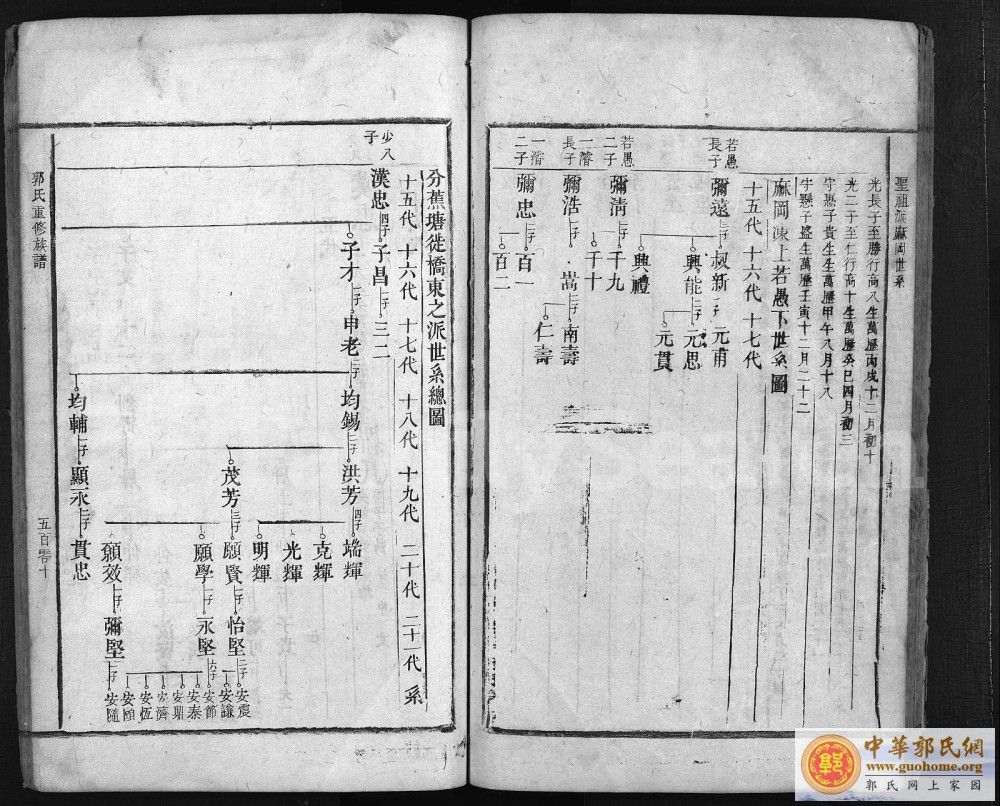 聖祖派麻岡世系
光長子至勝行高八生萬歷丙戌十二月初十
光二子至仁行高十生萬歷癸巳四月初三
守懸子貴生生萬歷甲午八月十八
守懸子盛生萬歷壬寅十二月二十二
麻岡 上若愚下世系圖
十五代 十六代 十七代
若愚長子
彌遠 二子 叔新 子 元甫
興能 二子 元思
元貫
興禮
若愚二子
彌清 二子 千九
千十
一濳長子
彌浩 子 嵩 二子 南壽
仁壽
一濳二子
彌忠 二子 百一
百二
分蕉塘徙橋東之派世系總圖
十五代 十六代 十七代 十八代 十九代 二十代 二十一代 系
少八子
漢忠 四子 子昌 一子 三二
子才 一子 申老 二子 均錫 二子 洪芳 四子 端輝
克輝
光輝
明輝
茂芳 三子 願賢 一子 怡堅 二子 安震
安謙
願學 一子 永堅 六子 安節
安泰
安鼎
安濟
安恆
安頤
願效 一子 彌堅 一子 安隨
均輔 一子 顯承 一子 貫忠
郭氏重修族譜
五百零十
中華郭氏網
www.guohome.org
郭氏網上家園